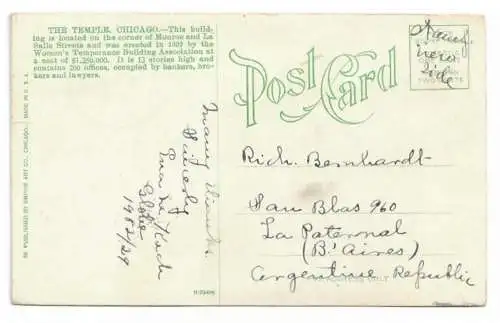 THE TEMPLE, CHICAGO.—This build-
ing is located on the corner of Monroe and La
Salle Streets and was erected in 1892 by the
Women's Temperance Building Association at
a cost of $1,250,000. It is 13 stories high and
contains 250 offices, occupied by bankers, bro-
kers and lawyers.
Post Card
Stamp
view
side
Many thanks
Sincerely
Globe
1982/29
Rich. Bernhardt
San Blas 960
La Paternal
(B. Aires)
Argentine Republic
MADE IN U.S.A.
PUBLISHED BY
ART CO., CHICAGO.